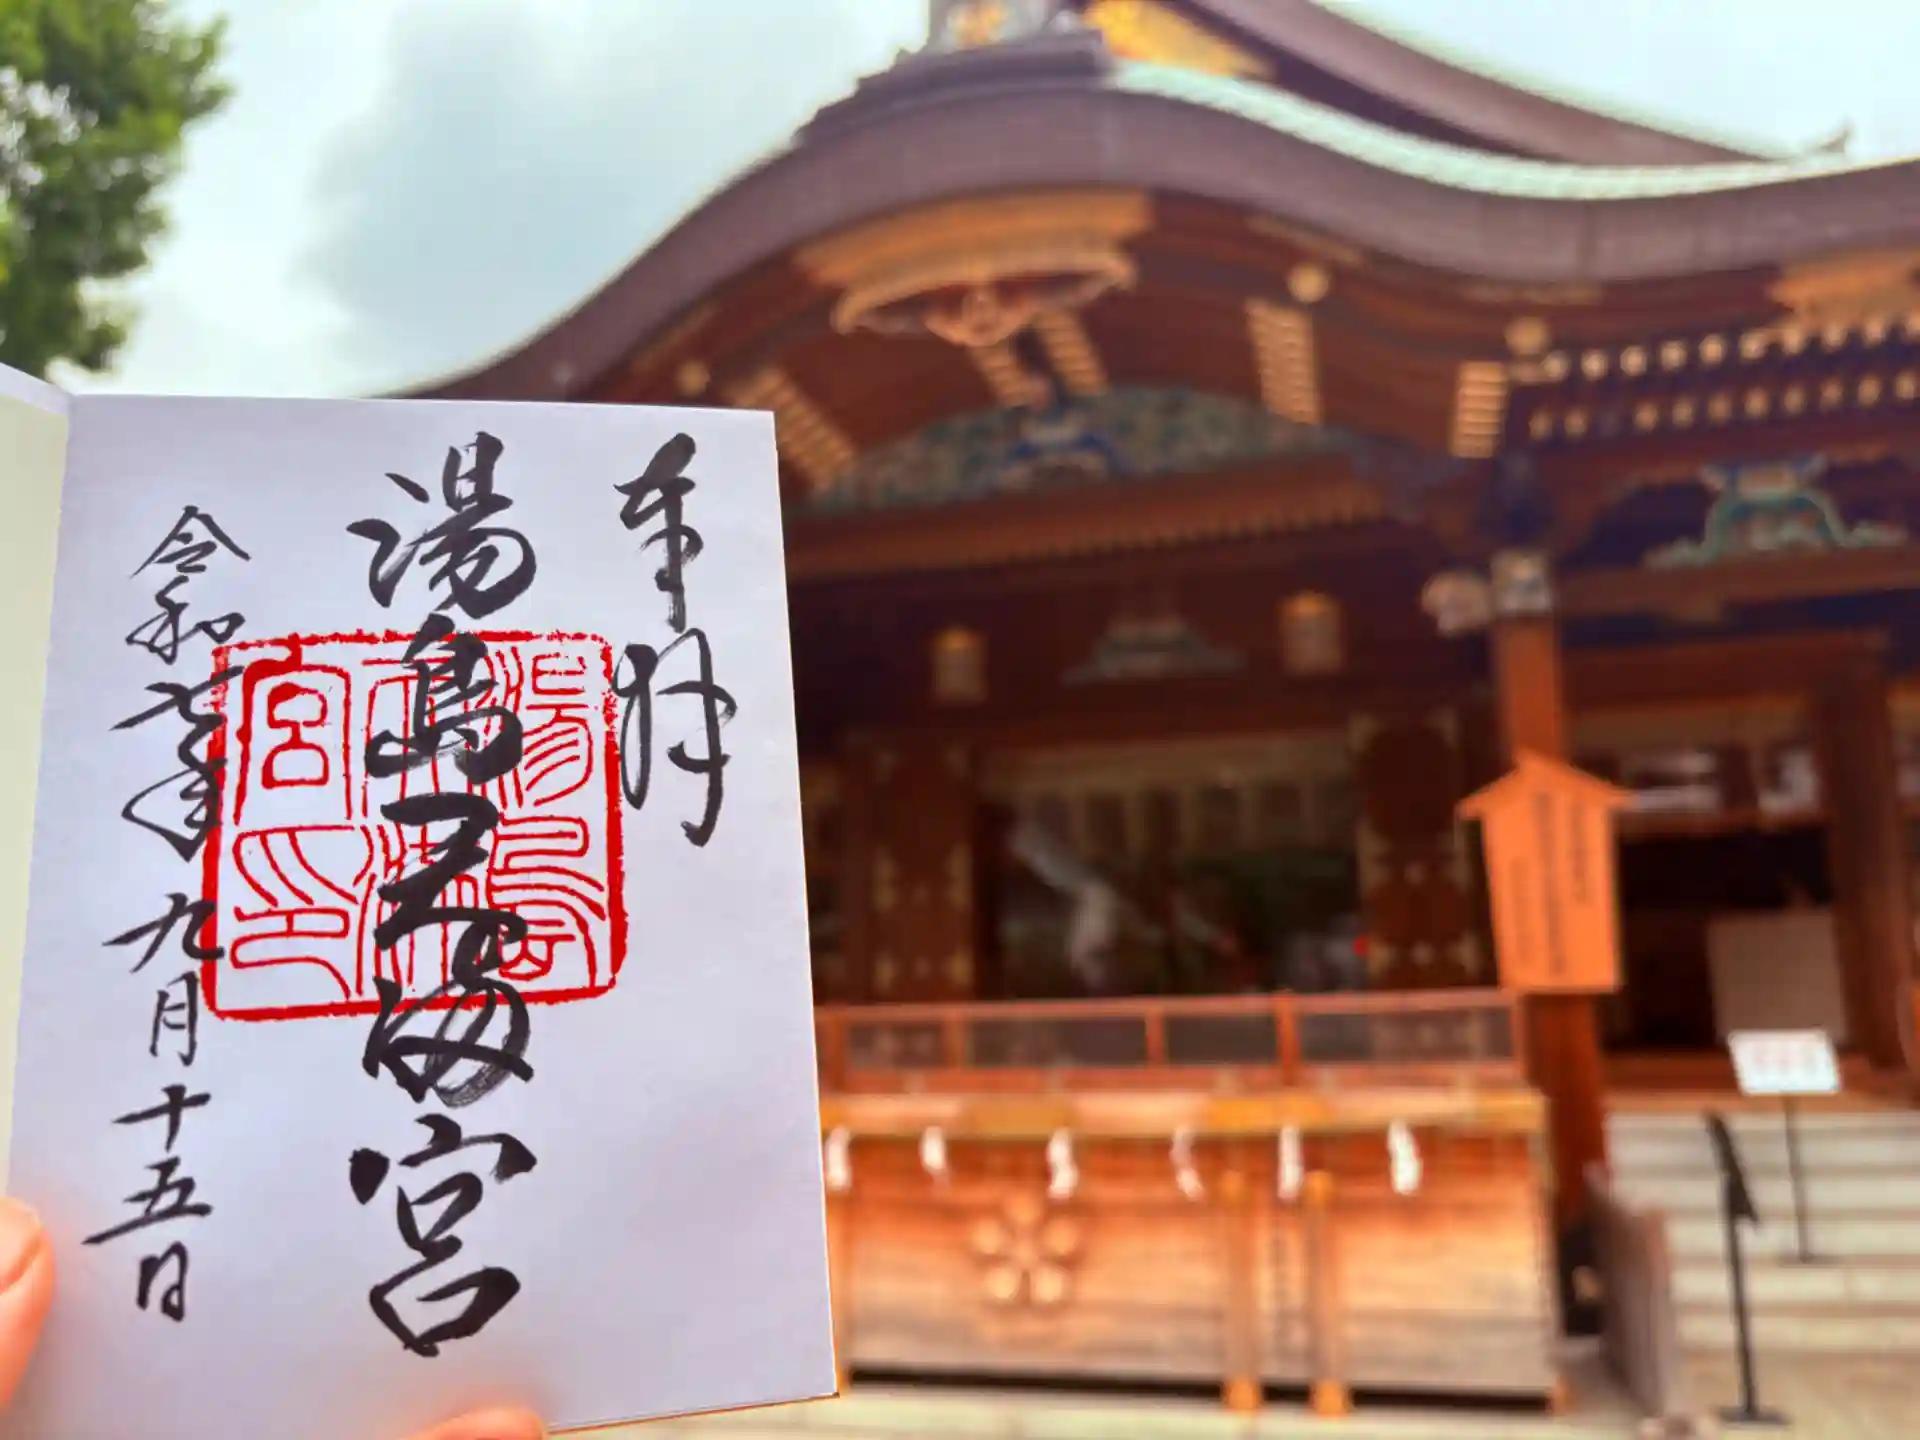 奉拝
湯島天満宮
湯島
天満
宮印
令和年九月十五日